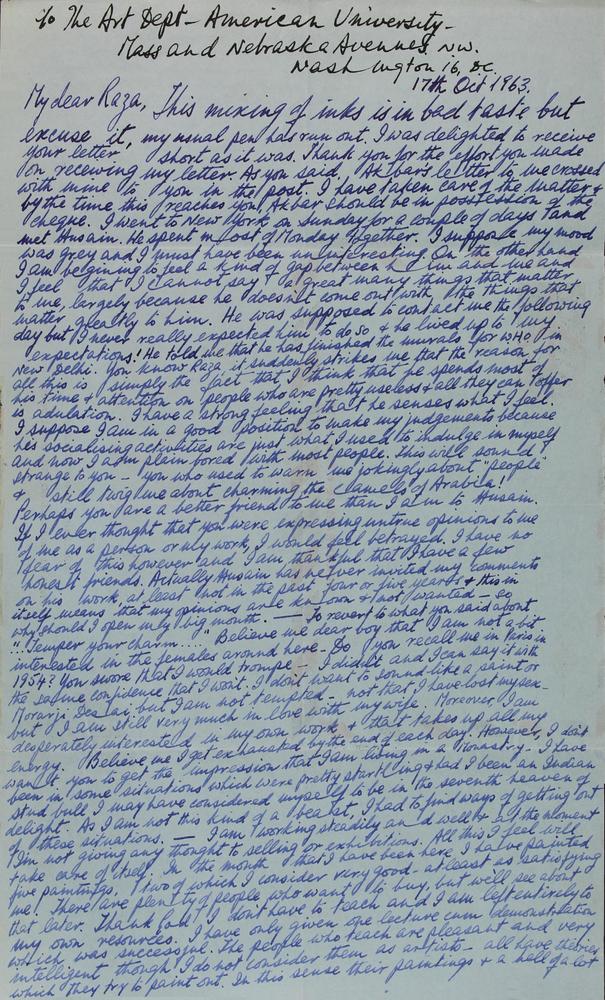 c/o The Art Dept - American University -
Mass and Nebraska Avenues, N.W.
Washington 16, D.C.
17th Oct 1963.
My dear Raza, This mixing of inks is in bad taste but
excuse it, my usual pen has run out. I was delighted to receive
your letter short as it was. Thank you for the effort you made
on receiving my letter. As you said, Akbar's letter to me crossed
with mine to you in the post. I have taken care of the matter &
by the time this reaches you Akbar should be in possession of the
cheque. I went to New York on Sunday for a couple of days and
met Husain. We spent most of Monday together. I suppose my mood
was grey and I must have been uninteresting. On the other hand
I am beginning to feel a kind of gap between him and me and
I feel that I cannot say a great many things that matter
to me, largely because he doesn't come out with the things that
matter greatly to him. He was supposed to contact me the following
day but I never really expected him to do so & he lived up to my
expectations! He told me that he has finished the murals for WHO in
New Delhi. You know Raza, it suddenly strikes me that the reason for
all this is simply the fact that I think that he spends most of
his time & attention on people who are pretty useless & all they can offer
is adulation. I have a strong feeling that he senses what I feel.
I suppose I am in a good position to make my judgements because
his socialising activities are just what I used to indulge in myself
and now I am plain bored with most people. This will sound
strange to you - you who used to warn me jokingly about "people"
& still twig me about charming the camels of Arabia!
Perhaps you are a better friend to me than I am to Husain.
If I ever thought that you were expressing untrue opinions to me
of me as a person or my work, I would feel betrayed. I have no
fear of this however and I am thankful that I have a few
honest friends. Actually Husain has never invited my comments
on his work, at least not in the past four or five years & this in
itself means that my opinions are known & not wanted - so
why should I open my big mouth. — To revert to what you said about
"Temper your charm...." Believe me dear boy that I am not a bit
interested in the females around here - Do you recall me in Paris in
1954? You swore that I would trompe - I didn't and I can say it with
the same confidence that I won't. I don't want to sound like a saint or
Morarji Desai but I am not tempted - not that I have lost my sex -
but I am still very much in love with my wife. Moreover I am
desperately interested in my own work & that takes up all my
energy. Believe me I get exhausted by the end of each day. However, I don't
want you to get the impression that I am living in a Monastry - I have
been in some situations which were pretty startling & had I been an Indian
stud bull I may have considered myself to be in the seventh heaven of
delight. As I am not this kind of a beast, I had to find ways of getting out
of these situations. — I am working steadily and well & at the moment
I'm not giving any thought to selling or exhibitions. All this I feel will
take care of itself. In the month that I have been here I have painted
five paintings, two of which I consider very good - at least as satisfying
me! There are plenty of people who want to buy, but we'll see about
that later. Thank God! I don't have to teach and I am left entirely to
my own resources. I have only given one lecture cum demonstration
which was successful. The people who teach are pleasant and very
intelligent though I do not consider them as artists - all have theories
which they try to paint out. In this sense their paintings & a hell of a lot